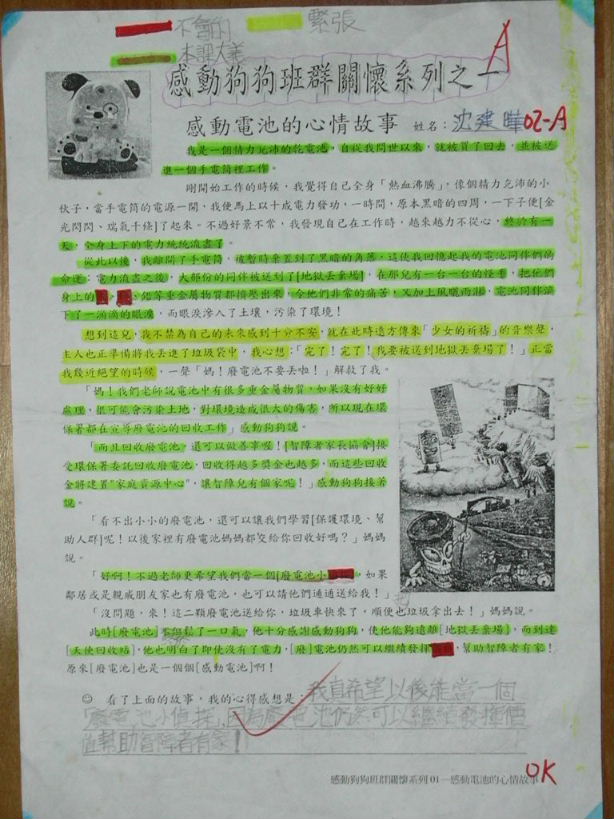 不會的 緊張
本課大義
A
感動狗狗班群關懷系列之一
感動電池的心情故事 姓名：沈建曄 02-A
我是一個精力充沛的乾電池，自從我問世以來，就被買了回去，並被送
進一個手電筒裡工作。
剛開始工作的時候，我覺得自己全身「熱血沸騰」，像個精力充沛的小
伙子，當手電筒的電源一開，我便馬上以十成電力發功，一時間，原本黑暗的四周，一下子便[金
光閃閃、瑞氣千條]了起來。不過好景不常，我發現自己在工作時，越來越力不從心，終於有一
天，全身上下的電力統統流盡了。
從此以後，我離開了手電筒，被暫時棄置到了黑暗的角落，這使我回憶起我的電池同伴們的
命運：電力流盡之後，大部份的同伴被送到了[地獄丟棄場]，在那兒有一台一台的怪手，把他們
身上的 、 鉛等重金屬物質都擠壓出來，令他們非常的痛苦，又加上風曬雨淋，電池同伴流
下了一滴滴的眼淚，而眼淚滲入了土壤，污染了環境！
想到這兒，我不禁為自己的未來感到十分不安，就在此時遠方傳來「少女的祈禱」的音樂聲，
主人也正準備將我丟進了垃圾袋中，我心想：「完了！完了！我要被送到地獄丟棄場了！」正當
我幾近絕望的時候，一聲「媽！廢電池不要丟啦！」解救了我。
「媽！我們老師說電池中有很多重金屬物質，如果沒有好好
處理，很可能會污染土地，對環境造成很大的傷害，所以現在環
保署都在宣導廢電池的回收工作」感動狗狗說。
「而且回收廢電池，還可以做善事喔！[智障者家長協會]接
受環保署委託回收廢電池，回收得越多獎金也越多，而這些回收
金將建置"家庭資源中心"，讓智障兒有個家啦！」感動狗狗接著
說。
「看不出小小的廢電池，還可以讓我們學習[保護環境、幫
助人群]呢！以後家裡有廢電池媽媽都交給你回收好嗎？」媽媽
說。
「好啊！不過老師更希望我們當一個[廢電池小 ，如果
鄰居或是親戚朋友家也有廢電池，也可以請他們通通送給我！」
「沒問題，來！這二顆廢電池送給你，垃圾車快來了，順便也垃圾拿出去！」媽媽說。
此時[廢電池] 鬆了一口氣，他十分感謝感動狗狗，使他能夠遠離[地獄丟棄場]，而到達
[天使回收站]，他也明白了即使沒有了電力，[廢]電池仍然可以繼續發揮 ，幫助智障者有家！
原來[廢電池]也是一個個[感動電池]啊！
☺ 看了上面的故事，我的心得感想是：我真希望以後能當一個
廢電池小偵探，因為廢電池仍然可以繼續發揮價
值幫助智障者有家！
感動狗狗班群關懷系列 01—感動電池的心情故事
OK